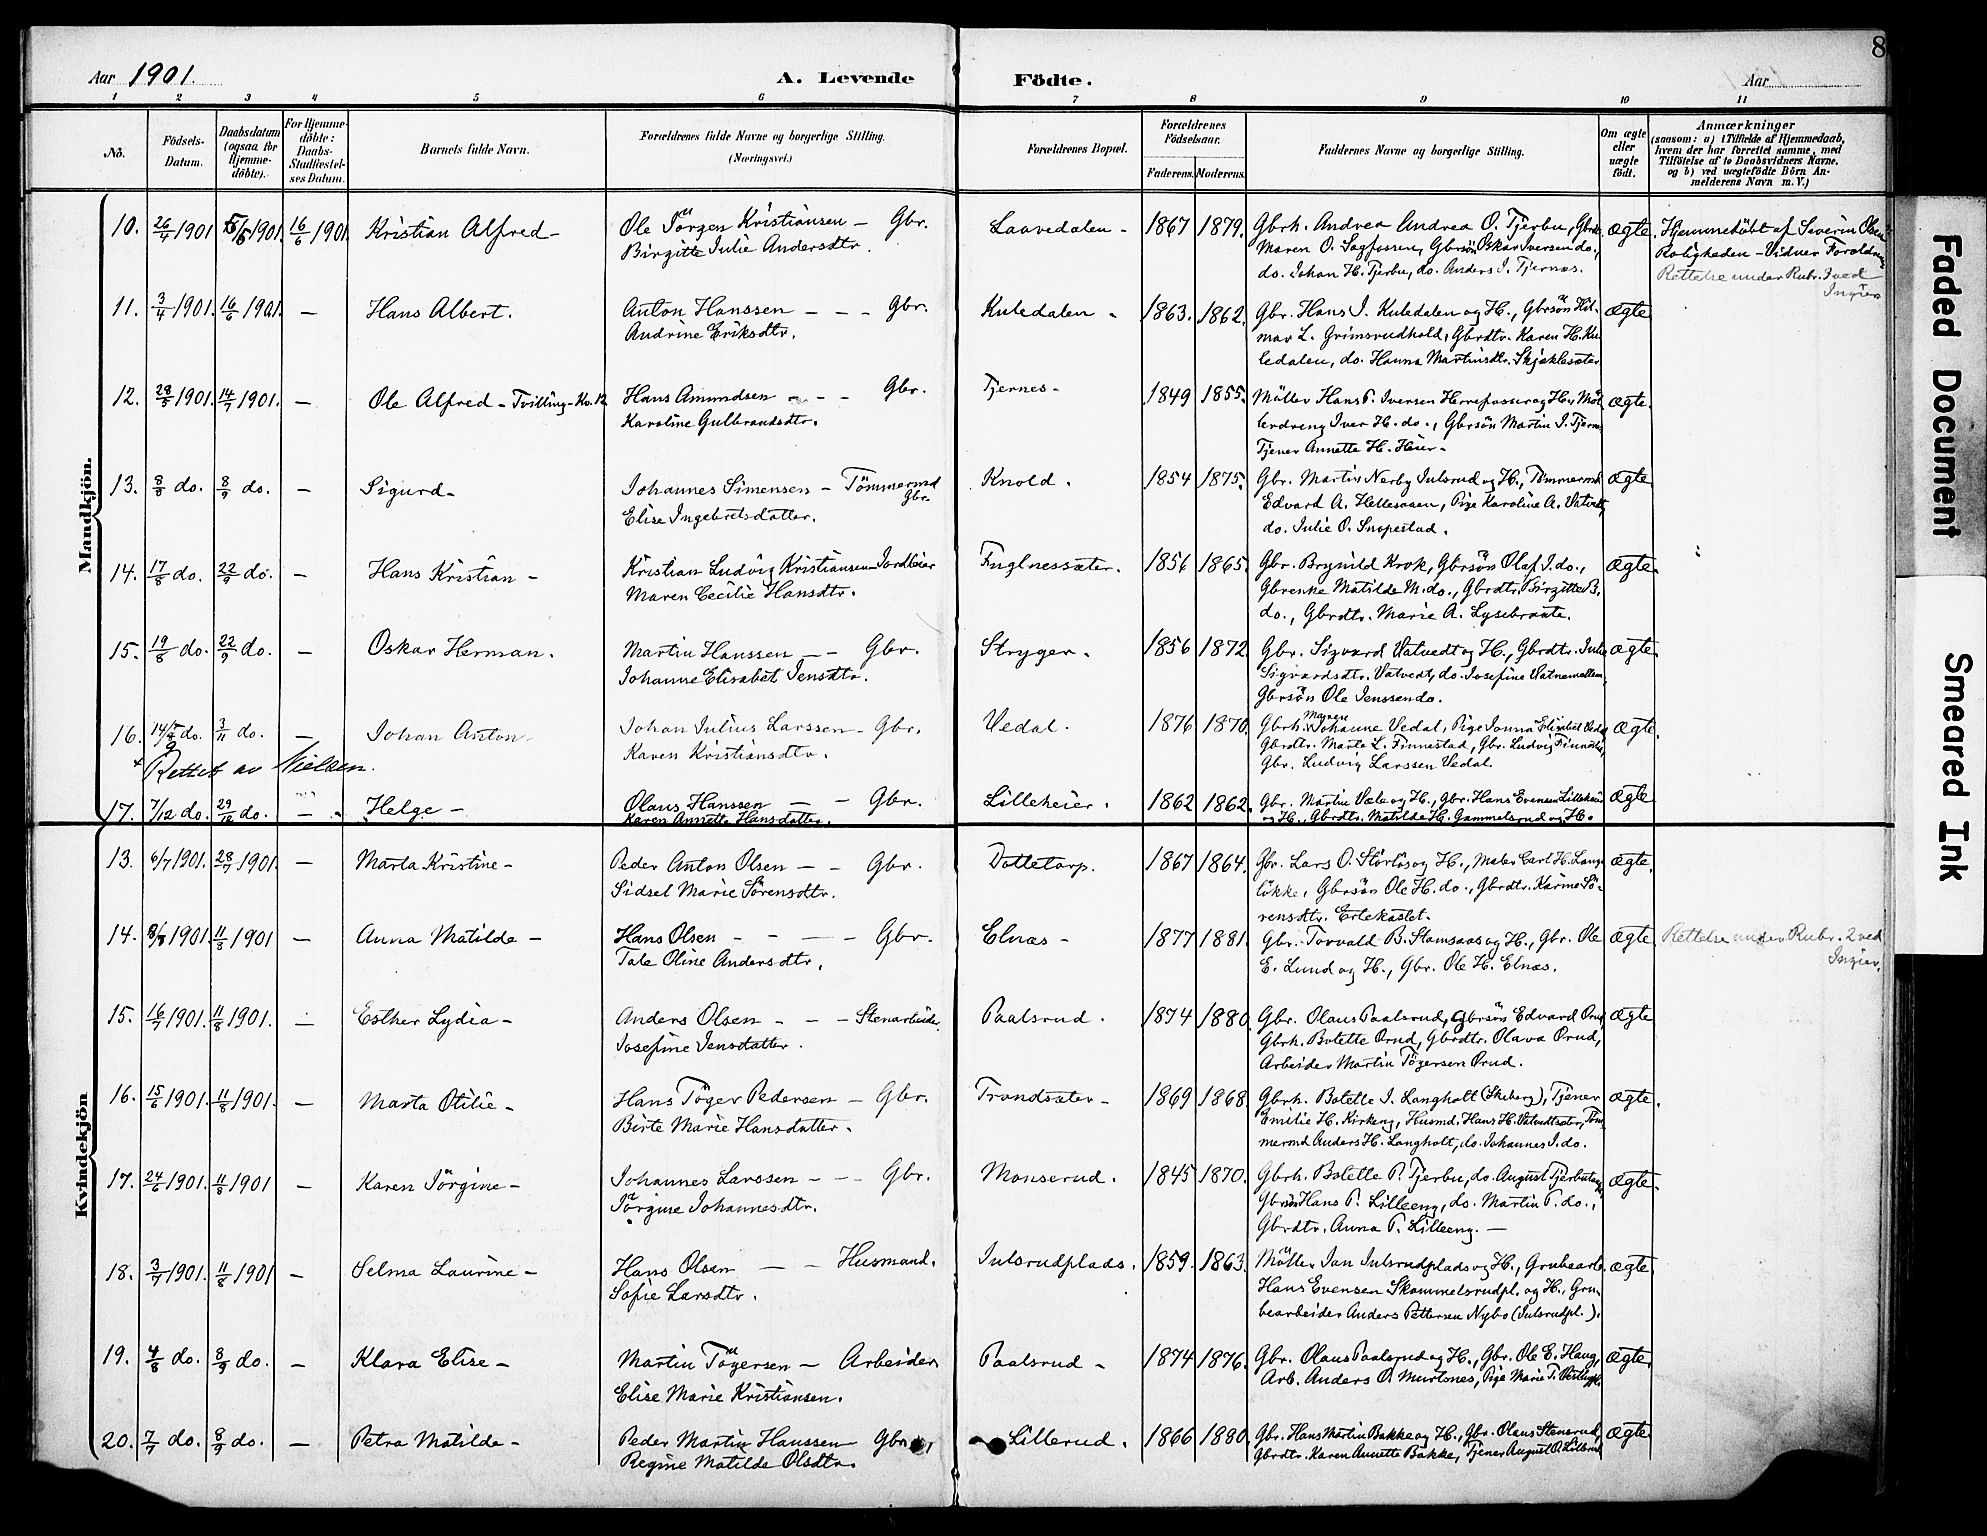 8
Aar 1901.
A. Levende Födte.
Aar
1 2 3 4 5 6 7 8 9 10 11
No.
Födsels-Datum.
Daabsdatum (ogsaa for Hjemme-döbte).
For Hjemme-döbte: Daabs-Stadfæstel-ses Datum.
Barnets fulde Navn.
Forældrenes fulde Navne og borgerlige Stilling. (Næringsvei.)
Forældrenes Bopæl.
Forældrenes Födselsaar.
Faderens. Moderens.
Faddernes Navne og borgerlige Stilling.
Om ægte eller uægte födt.
Anmærkninger
(saasom: a) i Tilfælde af Hjemmedaab, hvem der har forrettet samme, med Tilföielse af to Daabsvidners Navne, og b) ved uægtefödte Börn An-melderens Navn m. V.)
Mandkjön.
10. 26/4 1901 1901. 16/6 1901. Kristian Alfred – Ole Jörgen Kristiansen – Gbr. Laavedalen – 1867 1879. Gbrh. Andrea Andrea O. Tjerbu, Gbrk. ægte. Hjemmedöbt af Severin Olsen
Birgitte Julie Andersdtr. Maren O. Sagfossen, Gbrsön Oskar Iversen do. Roligheden – Vidner Forældrene
do. Johan H. Tjerbu, do. Anders I. Tjernæs. Rettelse under Rubr. 3 ved
Ingier
11. 3/4 1901. 16/6 1901. – Hans Albert. Anton Hanssen – – – Gbr. Kuledalen – 1863. 1862. Gbr. Hans J. Kuledalen og H., Gbrsön Hil- ægte
Andrine Eriksdtr. mar L. Grimsrudhold, Gbrdtr. Karen H. Ku-
ledalen, do. Hanna Martinsdtr. Skjæklesæter
12. 28/5 1901. 14/7 1901. – Ole Alfred – Tvilling – Kv. 12 Hans Amundsen – – – Gbr. Tjernes – 1849 1855. Möller Hans P. Iversen Herrefosser og H., Möl- ægte.
Karoline Gulbrandsdtr. lerdreng Iver H. do., Gbrsön Martin I. Tjern
Tjener Annette H. Heier –
13. 8/8 do. 8/9 do. – Sigurd – Johannes Simensen – Tömmermd Gbr. Knold. 1854 1875. Gbr. Martin Nerby Julsrud og H., Tömmermd ægte
Elise Ingebretsdatter. Edvard A. Hellesaasen, Pige Karoline A. Vatvedt,
do. Julie O. Snopestad.
14. 17/8 do. 22/9 do. – Hans Kristian – Kristian Ludvig Kristiansen – Jordleier Fuglnessæter. 1856 1865. Gbr. Brynild Krok, Gbrsön Olaf J. do., ægte.
Maren Cecilie Hansdtr. Gbrenke Matilde M. do., Gbrdtr. Birgitte B.
do., Gbrdtr. Marie A. Lysebraate.
15. 19/8 do. 22/9 do. – Oskar Herman. Martin Hanssen – – Gbr. Stryger. 1856 1872. Gbr. Sigvard Vatvedt og H., Gbrdtr. Julie ægte.
Johanne Elisabet Jensdtr. Sigvardsdtr. Vatvedt, do. Josefine Vatnemellem,
Gbrsön Ole Jenssen do.
16. 14/9 do. 3/11 do. – Johan Anton – Johan Julius Larssen – Gbr. Vedal. 1876 1870. Gbrh. Maren Johanne Vedal, Pige Jonna Elisabet Vedal ægte.
Karen Kristiansdtr. Gbrdtr. Marte L. Finnestad, Gbr. Ludvig Finnestad,
Rettet av Nielsen. Gbr. Ludvig Larssen Vedal.
17. 7/12 do. 29/12 do. – Helge – Olaus Hanssen – – Gbr. Lilleheier. 1862 1862. Gbr. Martin Væle og H., Gbr. Hans Evensen Lilleheier ægte
Karen Annette Hansdatter. og H., Gbrdtr. Matilde H. Gammelsrud og H.
Kvindekjön
13. 6/7 1901. 28/7 1901. – Marta Kristine – Peder Anton Olsen – – Gbr. Dottetorp. 1867 1864. Gbr. Lars O. Störlös og H., Maler Carl H. Lang- ægte.
Sidsel Marie Sörensdtr. lökke, Gbrsön Ole H. do., Gbrdtr. Karine Sö-
rensdtr. Ertekastet.
14. 8/7 1901. 11/8 1901 – Anna Matilde – Hans Olsen – – – Gbr. Elnæs – 1877 1881. Gbr. Torvald B. Stamsaas og H., Gbr. Ole ægte Rettelse under Rubr. 2 ved
Tale Oline Andersdtr. E. Lund og H., Gbr. Ole H. Elnæs. Ingier.
15. 16/7 1901. 11/8 1901. – Esther Lydia – Anders Olsen – – – Stenarbeider. Paalsrud. 1874 1880. Gbr. Olaus Paalsrud, Gbrsön Edvard Ørud, ægte
Josefine Jensdatter. Gbrh. Bolette Ørud, Gbrdtr. Olava Ørud,
Arbeider Martin Tögersen Ørud.
16. 15/6 1901. 11/8 1901. – Marta Otilie – Hans Töger Pedersen – Gbr. Trondsæter – 1869 1868. Gbrh. Bolette J. Langholt (Skeberg), Tjener ægte.
Birte Marie Hansdatter. Emilie H. Kirkeng, Husmd. Hans H. Vatvedtsæter, Töm-
mermd Anders H. Langholt, do. Johannes J. do.
17. 24/6 1901. 11/8 1901 – Karen Jörgine – Johannes Larssen – – Gbr. Monserud. 1845 1870. Gbrh. Bolette P. Tjerbu, do. August Tjerbutang ægte.
Jörgine Johannesdtr. Gbrsön Hans P. Lilleeng, do. Martin P. do.,
Gbrdtr. Anna P. Lilleeng. –
18. 3/7 1901. 11/8 1901 – Selma Laurine – Hans Olsen – – Husmand. Julsrudplads. 1859. 1863. Möller Jan Julsrudplads og H., Grubearb. ægte.
Sofie Larsdtr. Hans Evensen Skammelsrudpl. og H., Gru-
bearbeider Anders Pettersen Nybo (Julsrudpl.).
19. 4/8 do. 8/9 do. – Klara Elise – Martin Tögersen – Arbeider Paalsrud – 1874 1876. Gbr. Olaus Paalsrud og H., Gbr. Ole E. Haug, ægte.
Elise Marie Kristiansen. Arb. Anders O. Murtsnes, Pige Marie T.
20. 7/7 do. 8/9 do. – Petra Matilde – Peder Martin Hanssen Gbr. Lillerud. 1866 1880. Gbr. Hans Martin Bakke og H., Gbr. Olaus Stensrud, ægte
Regine Matilde Olsdtr. Gbrdtr. Karen Annette Bakke, Tjener August O. Lillerud
Faded Document
Smeared Ink